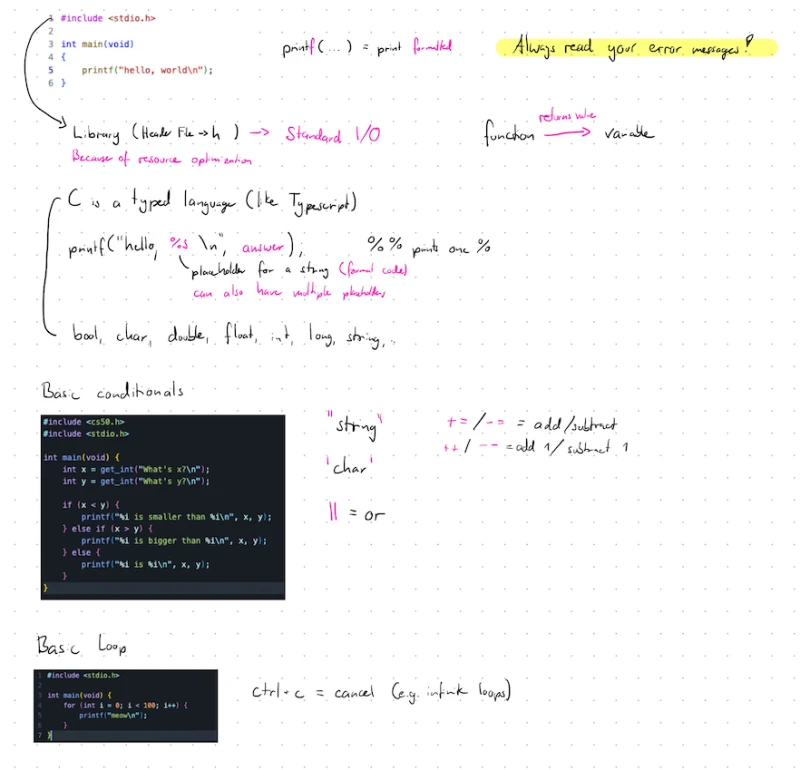 1 #include <stdio.h>
2
3 int main(void)
4 {
5 printf("hello, world\n");
6 }
printf(...) = print formatted
Always read your error messages!
Library (Header File → h ) → Standard I/O
Because of resource optimization
function returns value → variable
C is a typed language (like Typescript)
printf("hello, %s \n", answer);
%% prints one %
placeholder for a string (format code)
can also have multiple placeholders
bool, char, double, float, int, long, string, ..
Basic conditionals
#include <cs50.h>
#include <stdio.h>
int main(void) {
int x = get_int("What's x?\n");
int y = get_int("What's y?\n");
if (x < y) {
printf("%i is smaller than %i\n", x, y);
} else if (x > y) {
printf("%i is bigger than %i\n", x, y);
} else {
printf("%i is %i\n", x, y);
}
}
"string"
'char'
|| = or
+= / -= = add/subtract
++ / -- = add 1 / subtract 1
Basic Loop
1 #include <stdio.h>
2
3 int main(void) {
4 for (int i = 0; i < 100; i++) {
5 printf("meow\n");
6 }
7 }
ctrl + c = cancel (e.g. infinite loops)